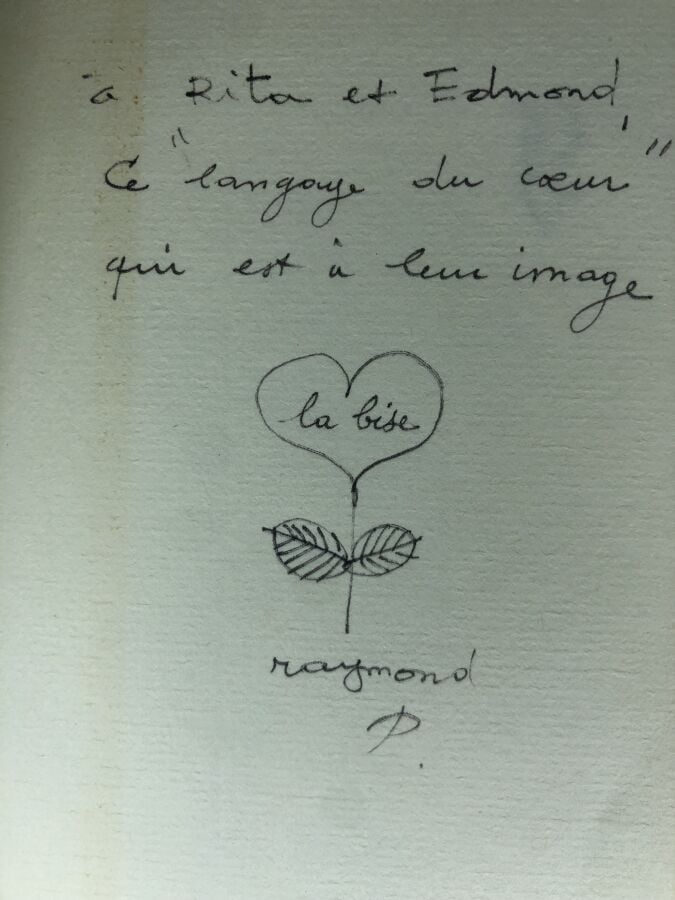 à Rita et Edmond,
Ce "langage du cœur"
qui est à leur image
la bise
raymond
P.